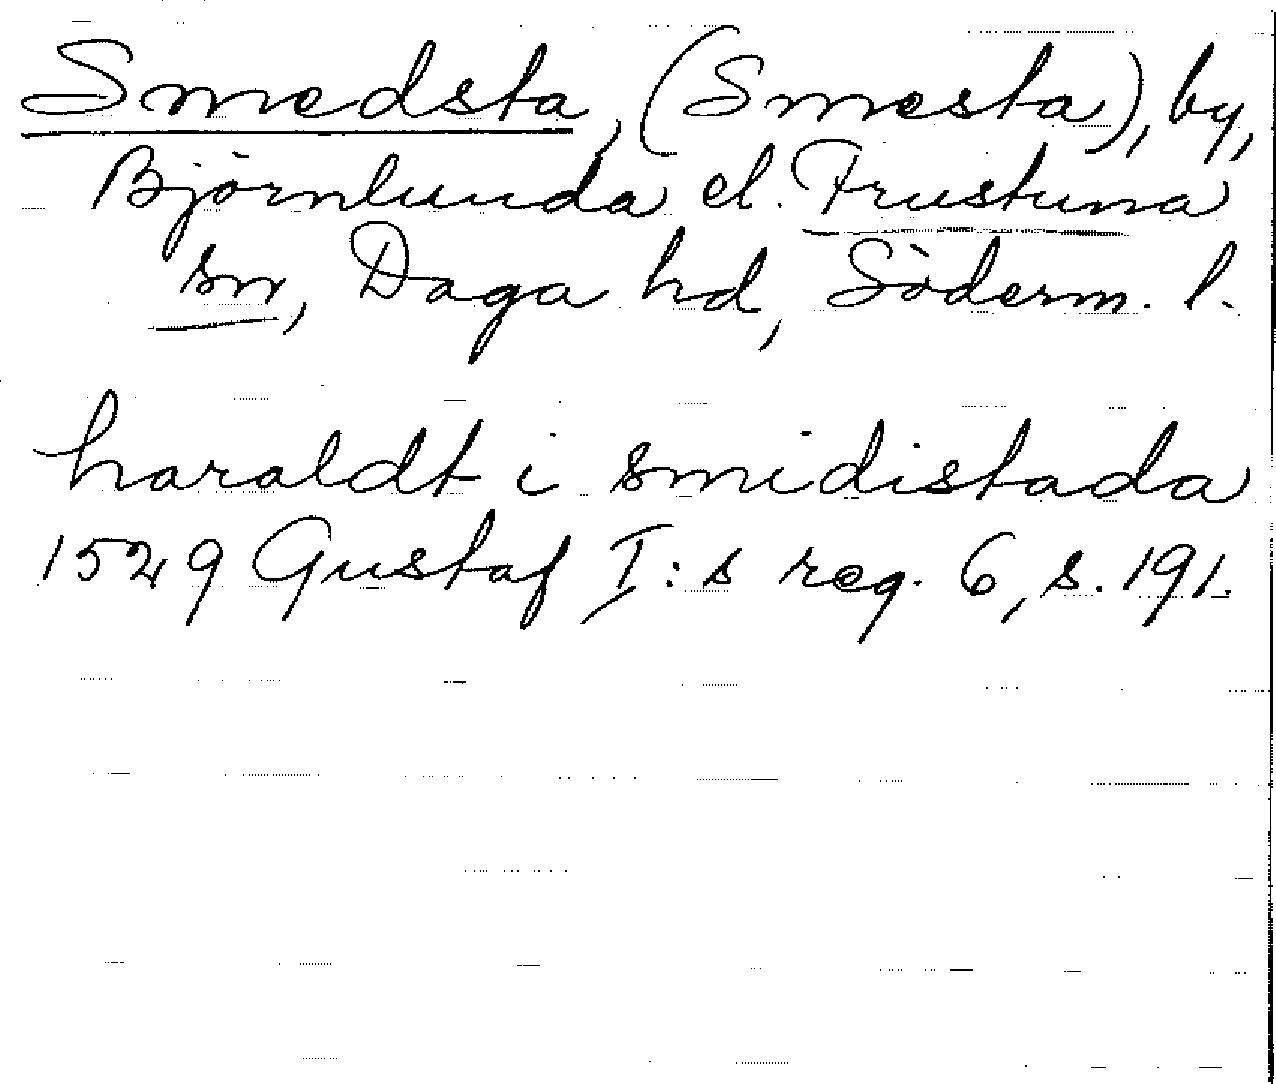 Smedsta, (Smesta), by,
Björnlunda el. Frustuna
sn, Daga hd, Söderm. l.
haraldt i smidistada
1529 Gustaf I:s reg. 6, s. 191.